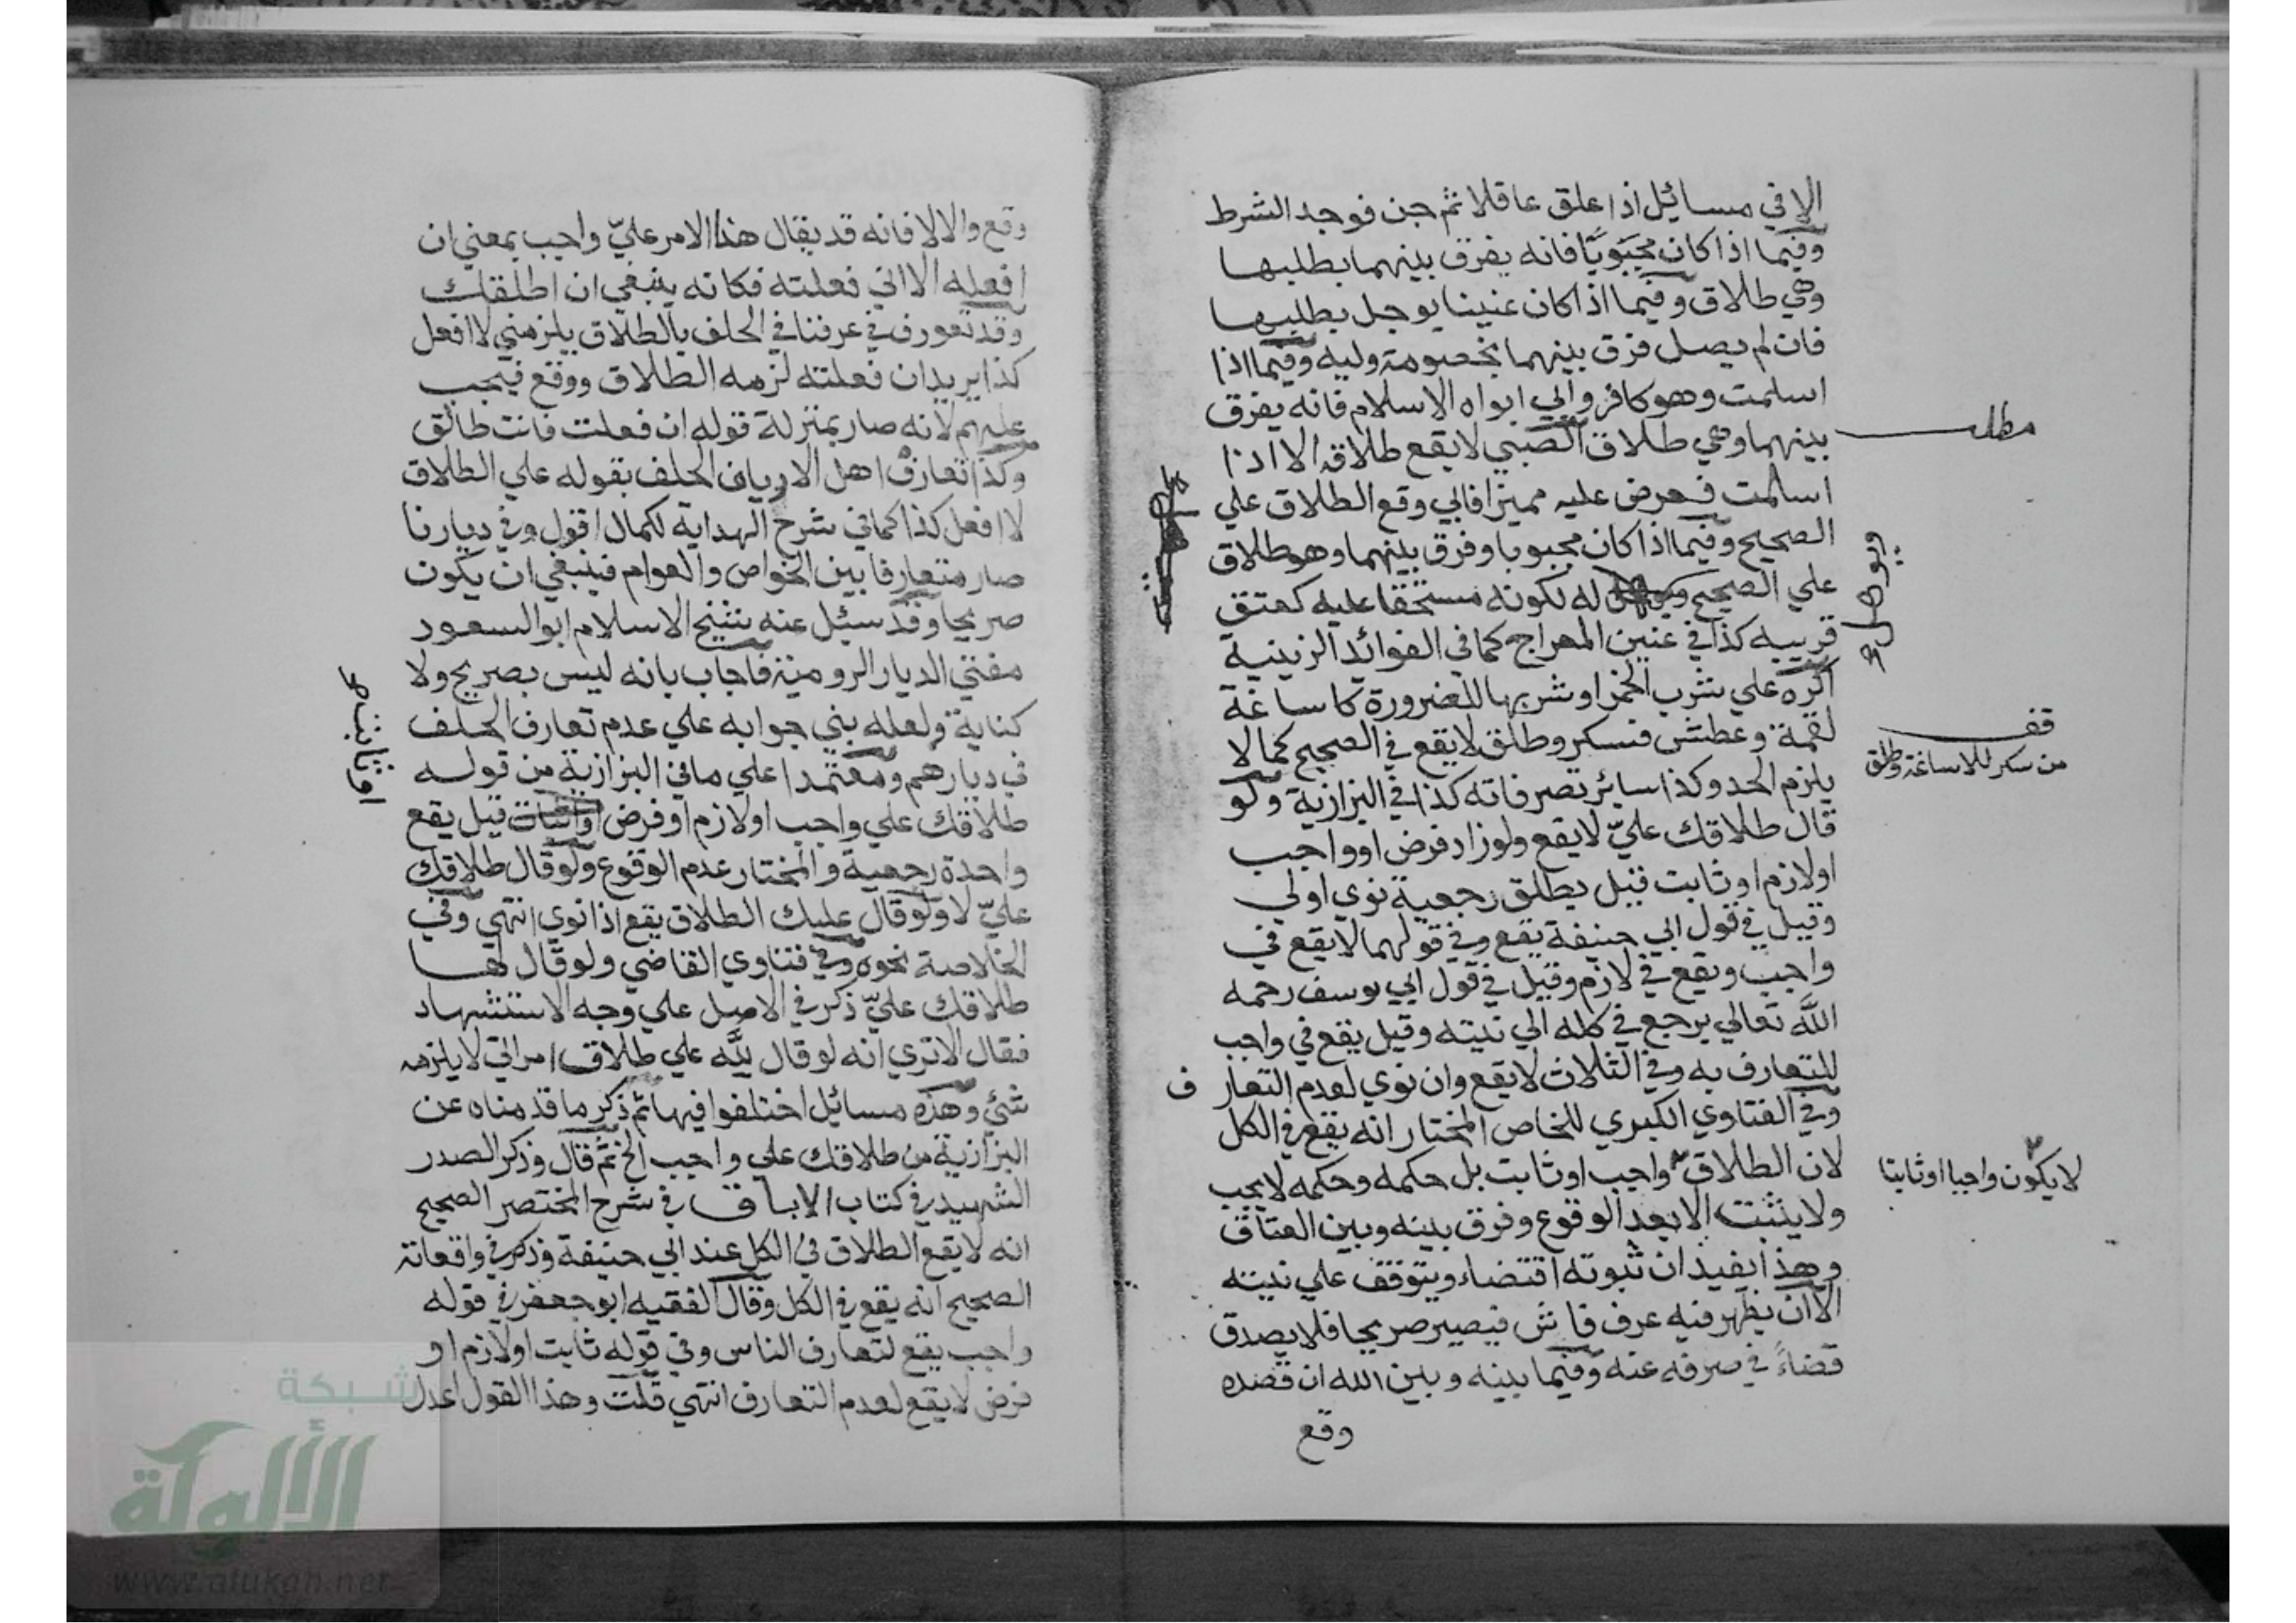 الا في مسائيل اذا علق عاقلا ثم جن فوجد الشرط
وفيما اذا كان مجبوبا فانه يفرق بينهما بطلبها
وهي طلاق وفيما اذا كان عنينا يوجل بطلبها
فان لم يصل فرق بينهما بخصومة وليه وفيما اذا
اسلمت وهو كافر وابي ابواه الاسلام فانه يفرق
بينهما وهي طلاق الصبي لا يقع طلاقه الا اذا
مطلب
اسلمت فعرض عليه مميزا فابي وقع الطلاق علي
الصحيح وفيما اذا كان مجبوبا وفرق بينهما وهو طلاق
علي الصحيح له لكونه مستحقا عليه كعتق
قريبه كذا في عنين المعراج كما في الفوائد الزينية
اكره علي شرب الخمر او شربها للضرورة كاساغة
لقمة وعطش فسكر وطلق لا يقع في الصحيح كما لا
قف
من سكر للاساغة وطلق
يلزم الحد وكذا سائر تصرفاته كذا في البزازية ولو
قال طلاقك عليّ لا يقع ولو زاد فرض او واجب
او لازم او ثابت قيل يطلق رجعية نوي او لي
وقيل في قول ابي حنيفة يقع وفي قولهما لا يقع في
واجب ويقع في لازم وقيل في قول ابي يوسف رحمه
الله تعالي يرجع في كله الي نيته وقيل يقع في واجب
للتعارف به وفي الثلاث لا يقع وان نوي لعدم التعارف
وفي الفتاوي الكبري للخاص المختار انه يقع في الكل
لان الطلاق واجب او ثابت بل حكمه وحكمه لا يجب
لا يكون واجبا او ثابتا
ولا يثبت الا بعد الوقوع وفرق بينه وبين العتاق
وهذا يفيد ان ثبوته اقتضاء ويتوقف علي نيته
الا ان يظهر فيه عرف فاش فيصير صريحا فلا يصدق
قضاءً في صرفه عنه وفيما بينه وبين الله ان قصده
وقع
وقع والا لا فانه قد يقال هذا الامر عليّ واجب بمعني ان
افعله الا اني فعلته فكانه ينبغي ان اطلقك
وقد تعورف في عرفنا في الحلف بالطلاق يلزمني لا افعل
كذا يريد ان فعلته لزمه الطلاق ووقع فيجب
عليهم لانه صار بمنزلة قوله ان فعلت فانت طالق
وكذا تعارف اهل الارياف الحلف بقوله علي الطلاق
لا افعل كذا كما في شرح الهداية لكمال اقول وفي ديارنا
صار متعارفا بين الخواص والعوام فينبغي ان يكون
صريحا وقد سئيل عنه شيخ الاسلام ابو السعود
مفتي الديار الرومية فاجاب بانه ليس بصريح ولا
كناية ولعله بني جوابه علي عدم تعارف الحلف
في ديارهم ومعتمدا علي ما في البزازية من قوله
طلاقك علي واجب او لازم او فرض قيل يقع
او ثابت صح
واحدة رجعية والمختار عدم الوقوع ولو قال طلاقك
عليّ لا ولو قال عليك الطلاق يقع اذا نوي انتهي وفي
الخلاصة نحوه وفي فتاوي القاضي ولو قال لها
طلاقك عليّ ذكر في الاصل علي وجه الاستشهاد
فقال الا تري انه لو قال لله علي طلاق امراتي لا يلزمه
شئ وهذه مسائيل اختلفوا فيها ثم ذكر ما قدمناه عن
البزازية من طلاقك علي واجب الخ ثم قال وذكر الصدر
الشهيد في كتاب الاباق في شرح المختصر الصحيح
انه لا يقع الطلاق في الكل عند ابي حنيفة وذكر في واقعاته
الصحيح انه يقع في الكل وقال الفقيه ابو جعفر في قوله
واجب يقع لتعارف الناس وفي قوله ثابت او لازم او
فرض لا يقع لعدم التعارف انتهي قلت وهذا القول اعدل
شبكة
الألوكة
www.alukah.net